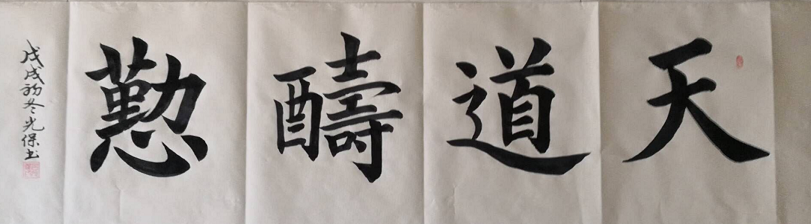 天道醻懃
戊戌初冬光保书